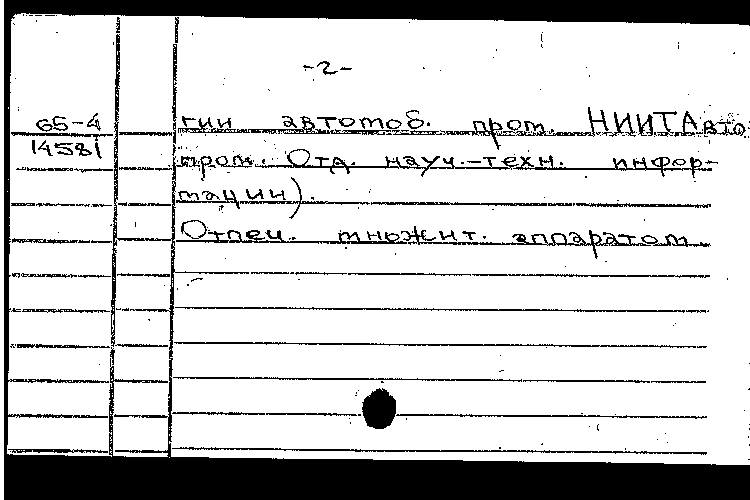 -2-
65-4
14581
гии автомоб. пром. НИИТАвто-
пром. Отд. науч.-техн. инфор-
мации).
Отпеч. множит. аппаратом.